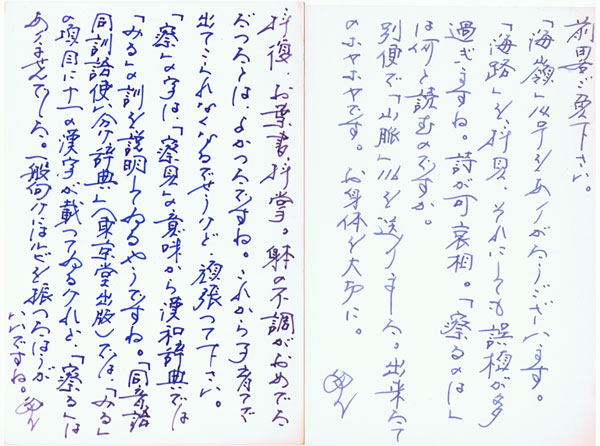 前略ご免下さい。
「海嶺」16号をありがたうございます。
「海路」を拝見、それにしても誤植が多
過ぎますね。詩が可哀相。「察るのは」
は何と読むのですか。
別便で「山脈」116を送りました。出来たて
のホヤホヤです。お身体を大切に。
拝復、お葉書拝掌。躰の不調がおめでた
だつたとは、よかつたですね。これから子育てで
出てこられなくなるでせうけど、頑張つて下さい。
「察」の字は、「察見」の意味から漢和辞典では
「みる」の訓を説明してゐるやうですね。「同音語
同訓語使い分け辞典」(東京堂出版)では、「みる」
の項目に十一の漢字が載つてゐるけれど、「察る」は
ありませんでした。一般向けにはルビを振つたほうが
いいですね。